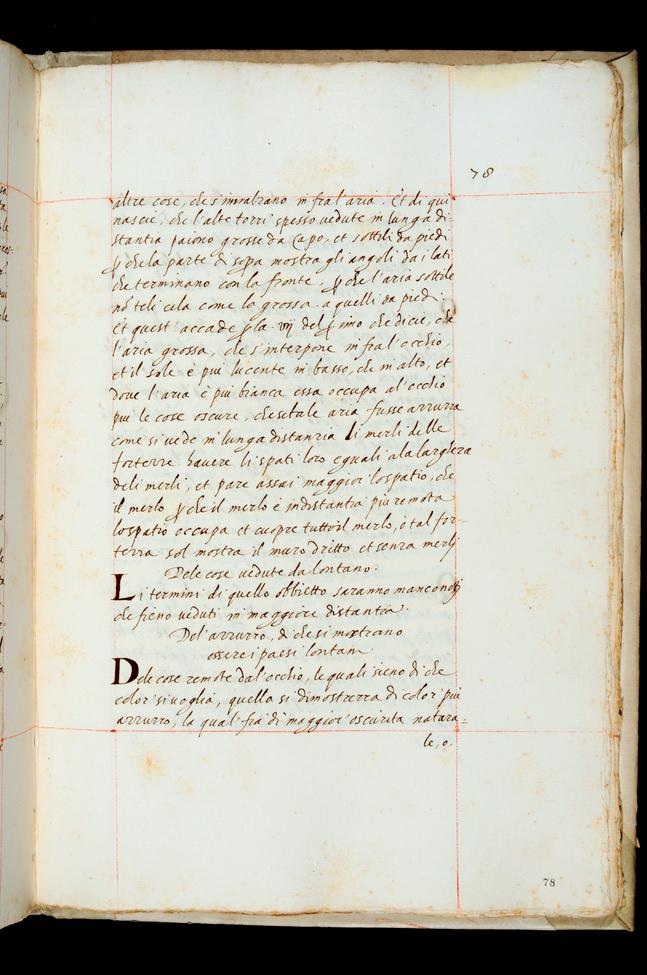 78
altre cose, che s'inalzano in fra l'aria. Et di qui
nascie, che l'alte torri spesso vedute in lunga di-
stantia paiono grosse da capo, et sottili da piedi
ꝑ che la parte di sopra mostra gli angoli da i lati
che terminano con la fronte, ꝑ che l'aria sottile
nō teli cela come la grossa a quelli da piedi.
Et quest' accade ꝑ la vij del ꝑimo che dicie, che
l'aria grossa, che s'interpone in fra l'occhio,
et il sole è piu lucente in basso, che in alto, et
dove l'aria è piu bianca essa occupa al'occhio
piu le cose oscure, che se tale aria fusse azzurra
come si vede in lunga distanzia li merli delle
forterre havere li spati loro eguali ala larghezza
deli merli, et pare assai maggior lo spatio, che
il merlo ꝑ che il merlo è in distantia piu remota
lo spatio occupa et cuopre tutto il merlo, e tal for-
terra sol mostra il muro dritto et senza merlj
Dele cose vedute da lontano.
Li termini di quello obbietto saranno manco notj
che fieno veduti in maggiore distantia.
Del'azzurro, di che si mostrano
essere i paesi lontani
Dele cose remote dal'occhio, le quali sieno di che
color' si voglia, quella si dimostrerra di color piu
azzurro, la qual' fia di maggior' oscurita natura=
le, o.
78